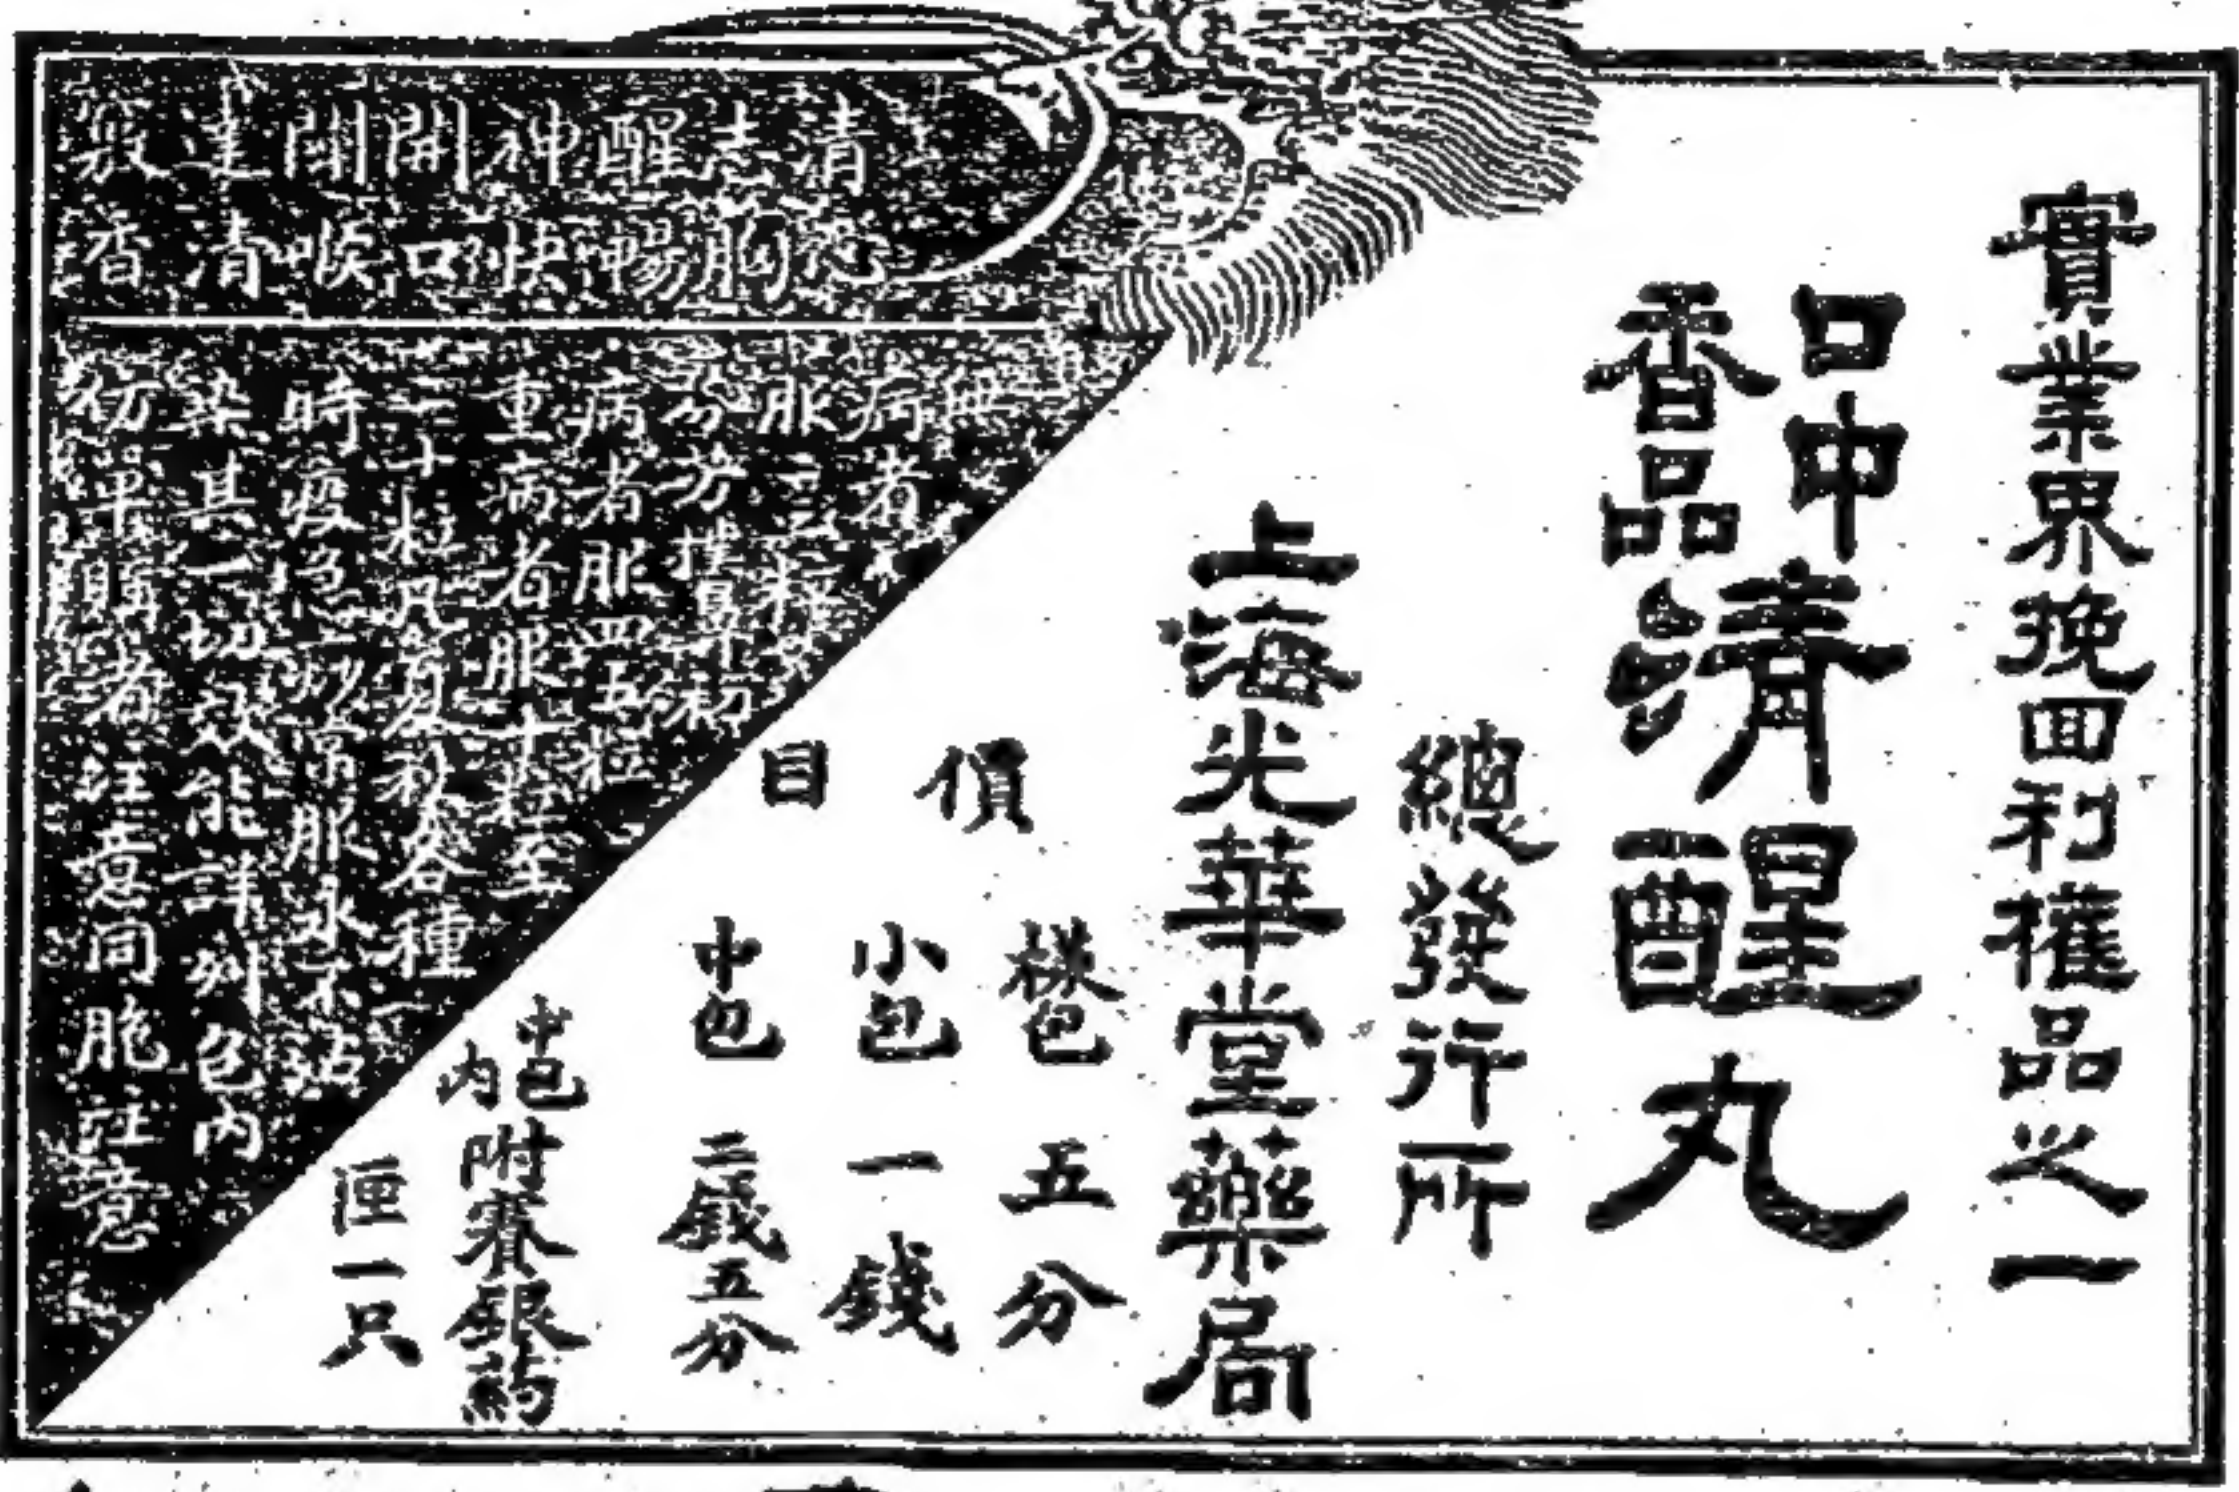 實業界挽回利權品之一
口中
香品
清醒丸
總發行所
上海光華堂藥局
價目
樣包 五分
小包 一錢
中包 二錢五分
中包
內
附賽銀葯
匣一只
清
志胸
醒暢
神快
開口
閉喉
達清
香
病者
服
方撲鼻初
病者服四五粒
重病者服十粒至
二十粒凡夏秋各種
時疫急痧常服永不沾
染其一切效能詳列包內
仿單購者注意同胞注意